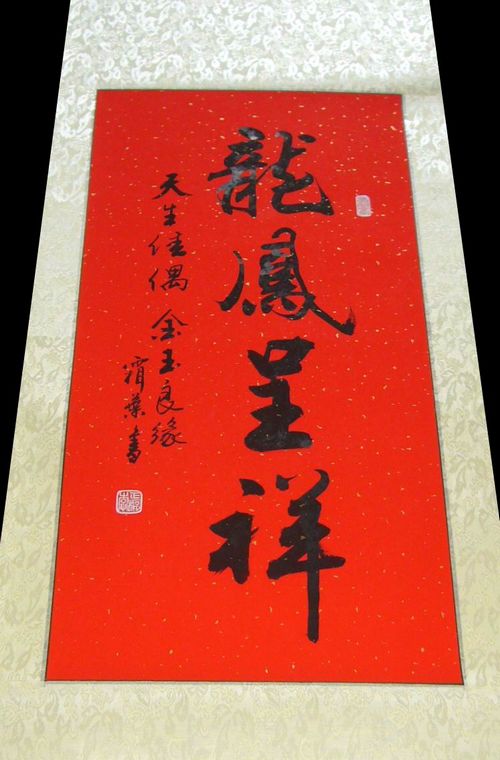 龍鳳呈祥
天生佳偶 金玉良緣
霜葉書